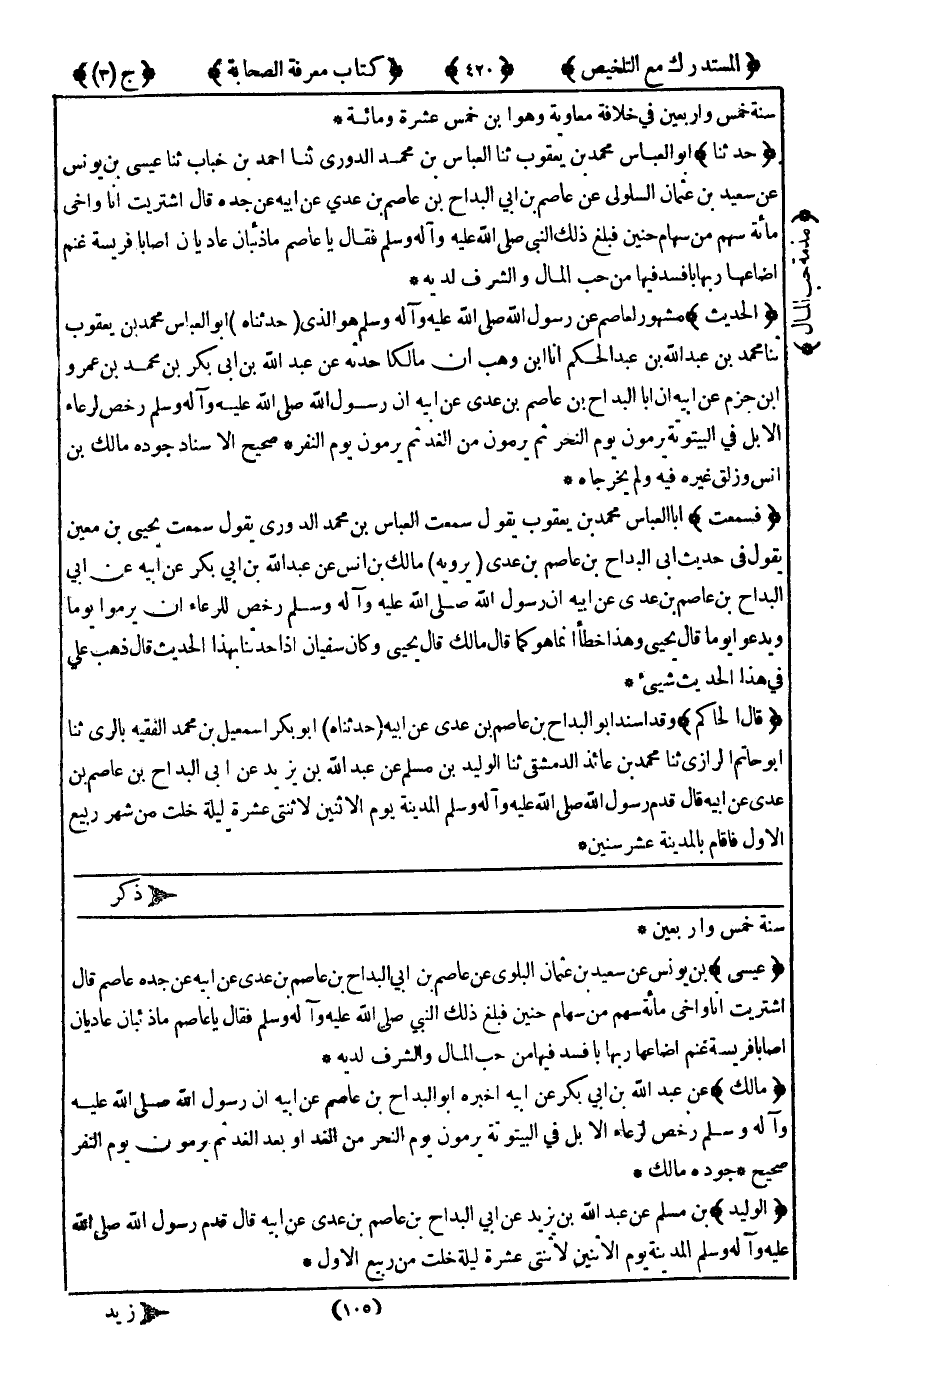 ﴿ المستدرك مع التلخيص ﴾ ﴿ ٤٢٠ ﴾ ﴿ كتاب معرفة الصحابة ﴾ ﴿ ج (٣) ﴾
سنة خمس واربعين في خلافة معاوية وهوا بن خمس عشرة ومائة *
﴿ حد ثنا ﴾ ابو العباس محمد بن يعقوب ثنا العباس بن محمد الدورى ثنا احمد بن خباب ثنا عيسى بن يونس
عن سعيد بن عثمان السلولى عن عاصم بن ابي البداح بن عاصم بن عدي عن ابيه عن جده قال اشتريت انا واخى
مأئة سهم من سهام حنين فبلغ ذلك النبي صلى الله عليه وآله وسلم فقال يا عاصم ماذئبان عاديان اصابا فريسة غنم
اضاعها ربها بافسد فيها من حب المال والشرف لديه *
﴿ مذمة حب المال ﴾
﴿ الحديث ﴾ مشهور لعاصم عن رسول الله صلى الله عليه وآله وسلم هو الذى ( حدثناه ) ابو العباس محمد بن يعقوب
ثنا محمد بن عبد الله بن عبد الحكم انا ابن وهب ان مالكا حدثه عن عبد الله بن ابى بكر بن محمد بن عمرو
ابن حزم عن ابيه ان ابا البداح بن عاصم بن عدى عن ابيه ان رسول الله صلى الله عليه وآله وسلم رخص لرعاء
الابل في البيتوتة يرمون يوم النحر ثم يرمون من الغد ثم يرمون يوم النفر * صحيح الاسناد جوده مالك بن
انس وزلق غيره فيه ولم يخرجاه *
﴿ فسمعت ﴾ ابا العباس محمد بن يعقوب يقول سمعت العباس بن محمد الدورى يقول سمعت يحيى بن معين
يقول فى حديث ابى البداح بن عاصم بن عدى ( يرويه ) مالك بن انس عن عبد الله بن ابي بكر عن ابيه عن ابي
البداح بن عاصم بن عدى عن ابيه ان رسول الله صلى الله عليه وآله وسلم رخص للرعاء ان يرموا يوما
ويدعوا يوما قال يحيى وهذا خطأ انما هو كما قال مالك قال يحيى وكان سفيان اذا حدثنا بهذا الحديث قال ذهب علي
في هذا الحديث شيئ *
﴿ قال الحاكم ﴾ وقد اسند ابو البداح بن عاصم بن عدى عن ابيه ( حدثناه ) ابو بكر اسمعيل بن محمد الفقيه بالرى ثنا
ابو حاتم الرازى ثنا محمد بن عائذ الدمشقى ثنا الوليد بن مسلم عن عبد الله بن يزيد عن ابى البداح بن عاصم بن
عدى عن ابيه قال قدم رسول الله صلى الله عليه وآله وسلم المدينة يوم الاثنين لاثنتى عشرة ليلة خلت من شهر ربيع
الاول فاقام بالمدينة عشر سنين *
ذكر
سنة خمس واربعين *
﴿ عيسى ﴾ بن يونس عن سعيد بن عثمان البلوى عن عاصم بن ابي البداح بن عاصم بن عدى عن ابيه عن جده عاصم قال
اشتريت انا واخى مأئة سهم من سهام حنين فبلغ ذلك النبي صلى الله عليه وآله وسلم فقال يا عاصم ماذئبان عاديان
اصابا فريسة غنم اضاعها ربها بافسد فيها من حب المال والشرف لديه *
﴿ مالك ﴾ عن عبد الله بن ابي بكر عن ابيه اخبره ابو البداح بن عاصم عن ابيه ان رسول الله صلى الله عليه
وآله وسلم رخص لرعاء الابل في البيتوتة يرمون يوم النحر من الغد او بعد الغد ثم يرمون يوم النفر
صحيح * جوده مالك *
﴿ الوليد ﴾ بن مسلم عن عبد الله بن يزيد عن ابي البداح بن عاصم بن عدى عن ابيه قال قدم رسول الله صلى الله
عليه وآله وسلم المدينة يوم الاثنين لاثنتى عشرة ليلة خلت من ربيع الاول *
(١٠٥)
زيد